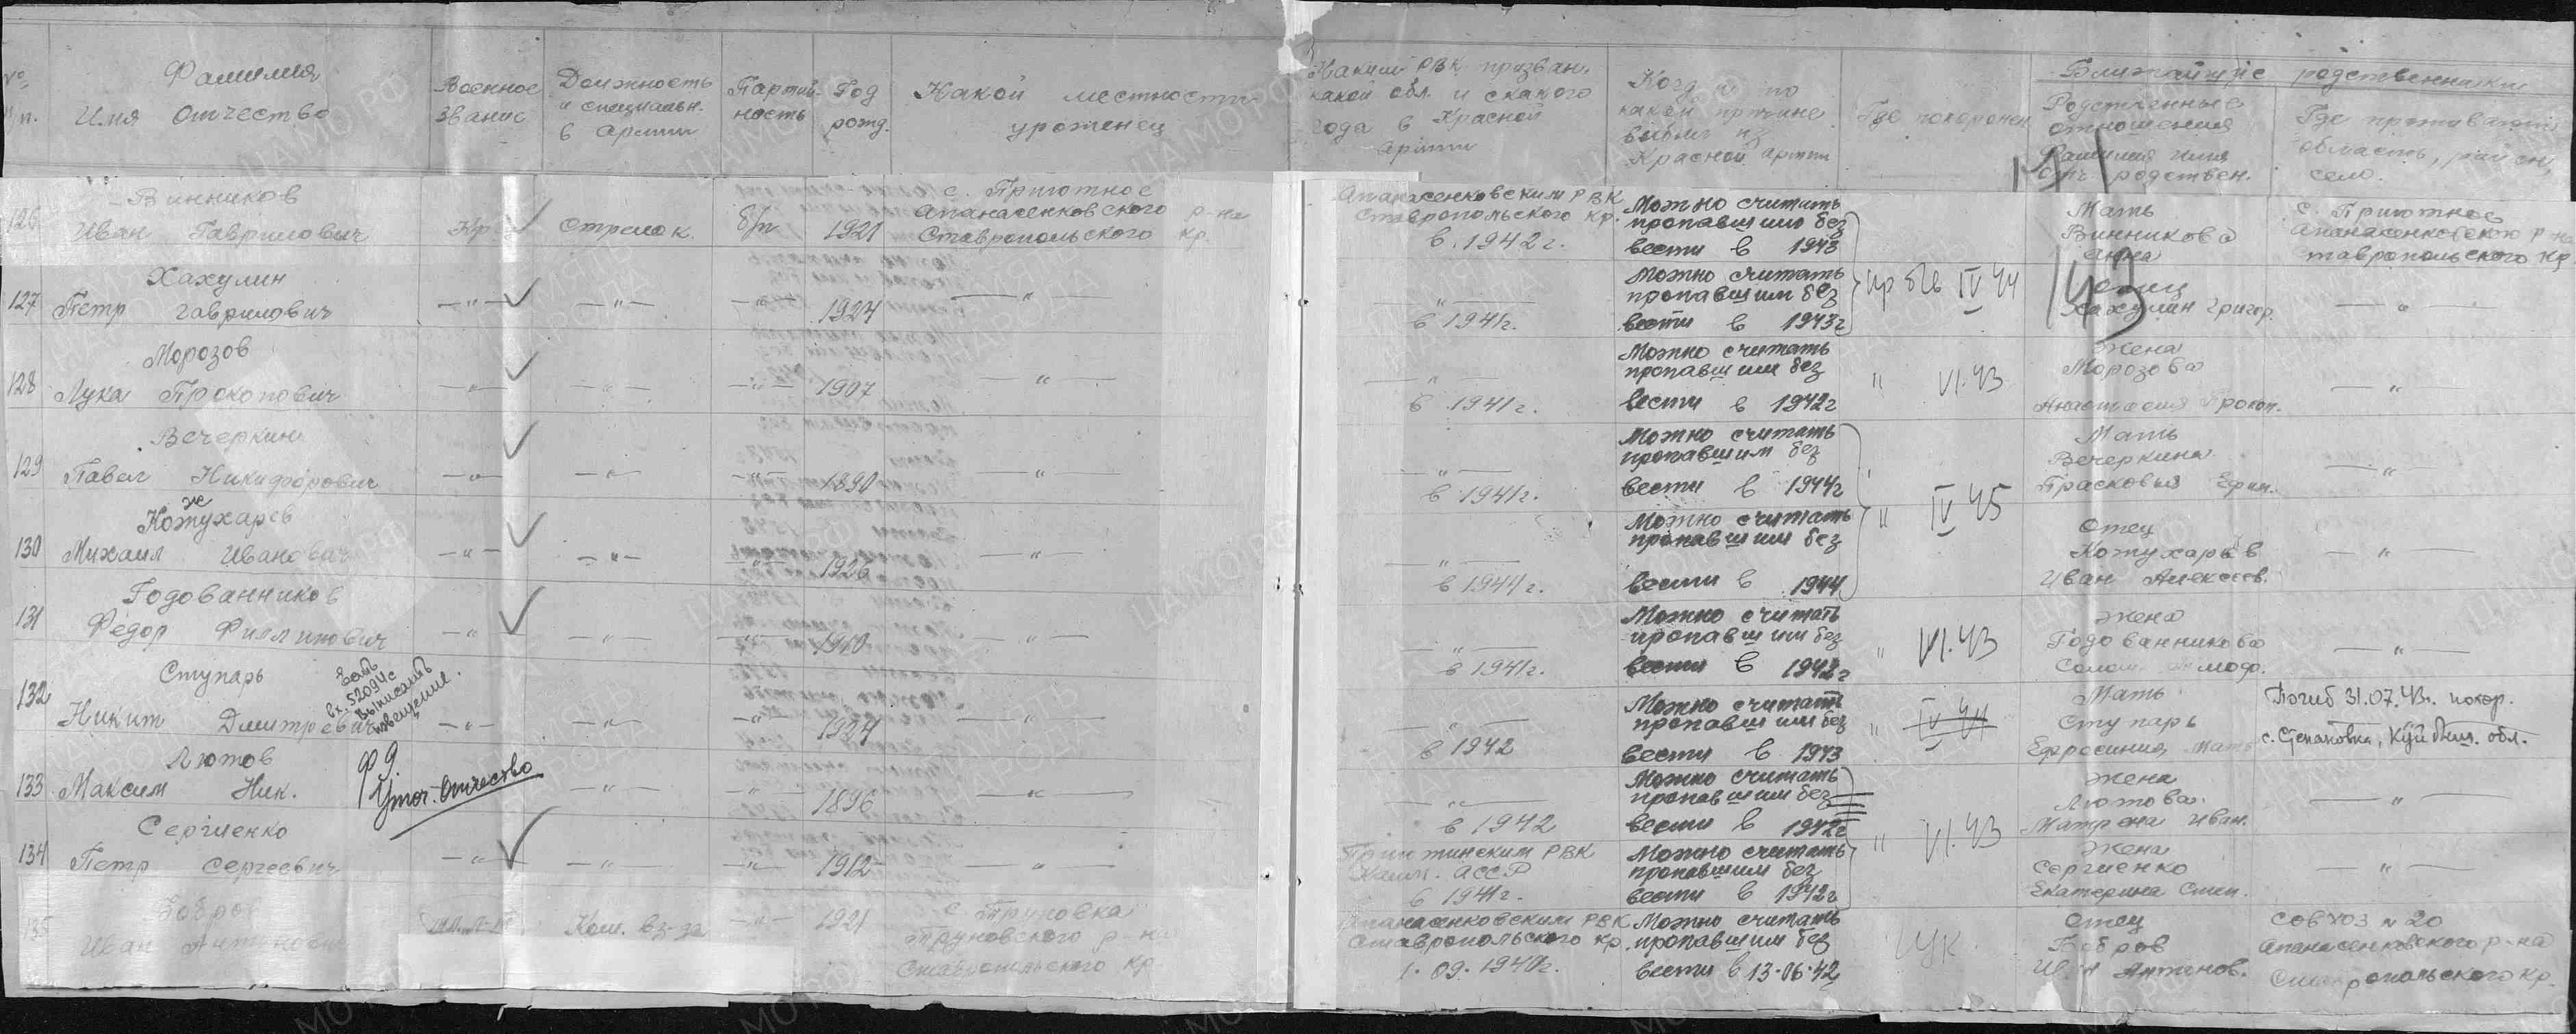 № п/п.
Фамилия
Имя Отчество
Военное
звание
Должность
и специальн.
в армии
Партий-
ность
Год
рожд.
Какой местности
уроженец
Каким РВК призван,
какой обл. и с какого
года в Красной
армии
Когда и по
какой причине
выбыл из
Красной армии
Где похоронен
Ближайшие родственники
Родственные
отношения
Фамилия имя
отч. родствен.
Где проживают
область, район,
село.
143
126
Винников
Иван Гаврилович
Кр.
Стрелок
б/п
1921
с. Приютное
Апанасенковского р-на
Ставропольского кр.
Апанасенковским РВК
Ставропольского кр.
в 1942 г.
Можно считать
пропавшим без
вести в 1943
Мать
Винникова
Анна
с. Приютное
Апанасенковского р-на
Ставропольского кр
127
Хахулин
Петр Гаврилович
—"— —"— —"— 1924 —"—
—"—
в 1941г.
Можно считать
пропавшим без
вести в 1943г
IV 44
Отец
Хахулин Григор.
—"—
128
Морозов
Лука Прокопович
—"— —"— —"— 1907 —"—
—"—
в 1941г.
Можно считать
пропавшим без
вести в 1942г
" VI.43
Жена
Морозова
Анастасия Прокоп.
—"—
129
Вечеркин
Павел Никифорович
—"— —"— —"— 1890 —"—
—"—
в 1941г.
Можно считать
пропавшим без
вести в 1944г
Мать
Вечеркина
Прасковья Ефим.
—"—
" IV 45
130
ж
Кожухарев
Михаил Иванович
—"— —"— —"— 1926 —"—
—"—
в 1944г.
Можно считать
пропавшим без
вести в 1944
Отец
Кожухарев
Иван Алексеев.
—"—
131
Годованников
Федор Филлипович
—"— —"— —"— 1910 —"—
—"—
в 1941г.
Можно считать
пропавшим без
вести в 1942г
" VI.43
Жена
Годованникова
—"—
132
Ступарь
Никит Дмитревич
Есть
вх. 52094с
выписать
извещение.
—"— —"— —"— 1924 —"—
—"—
в 1942
Можно считать
пропавшим без
вести в 1943
" IV 44
Мать
Ступарь
Ефросиния
Погиб 31.07.43г. похор.
с. Степановка, Куйбыш. обл.
133
Лютов
Максим Ник.
Уточ. отчество
—"— —"— 1896 —"—
—"—
в 1942
Можно считать
пропавшим без
вести в 1942г
Жена
Лютова.
Матрена Иван.
—"—
" VI.43
134
Сергиенко
Петр Сергеевич
—"— —"— —"— 1912 —"—
Приютинским РВК
Калм. АССР
в 1941г.
Можно считать
пропавшим без
вести в 1942г
Жена
Сергиенко
Екатерина Степ.
—"—
135
Бобров
Иван Антонович
мл. л-т
Ком. вз-да
—"—
1921
с. Труновка
Труновского р-на
Ставропольского кр.
Апанасенковским РВК
Ставропольского кр.
1.09.1940г.
Можно считать
пропавшим без
вести в 13.06.42
ГУК
Отец
Бобров
Антонов.
совхоз № 20
Апанасенковского р-на
Ставропольского кр.